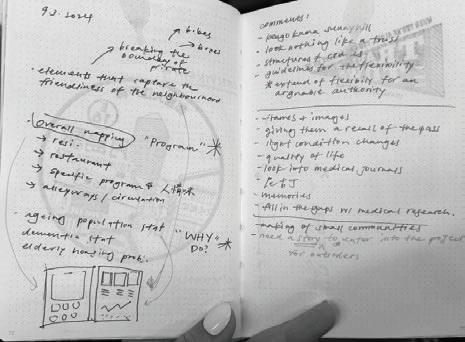 9.3.2024
→ bikes
→ boxes
→ breaking the
boundary of
private
· elements that capture the
friendliness of the neighbourhood
· Overall mapping "Program" *
→ resi.
→ restaurant
→ specific program & 人情味
→ alleyways / circulation
· ageing population stat
dementia stat "WHY" *
elderly housing prob. DO?
comments!
- look nothing like a
- structured
- guidelines for the flexibility.
* extend of flexibility for an
arguable authority
- frames & images
- giving them a recall of the pass
- light condition changes
- quality of life
- look into medical journals
- memories
- fill in the gaps w/ medical research.
- making of small communities
- need a story to enter into the project
for outsiders